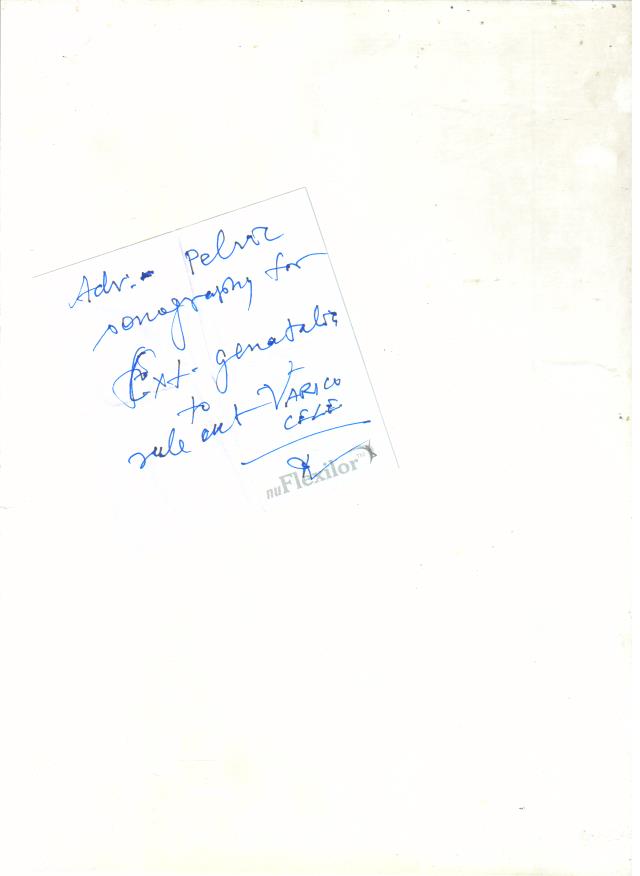 Adv:- Pelvic
sonography for
Ext. genatalia
to
rule out VARICO
CELE
nuFlexilor™